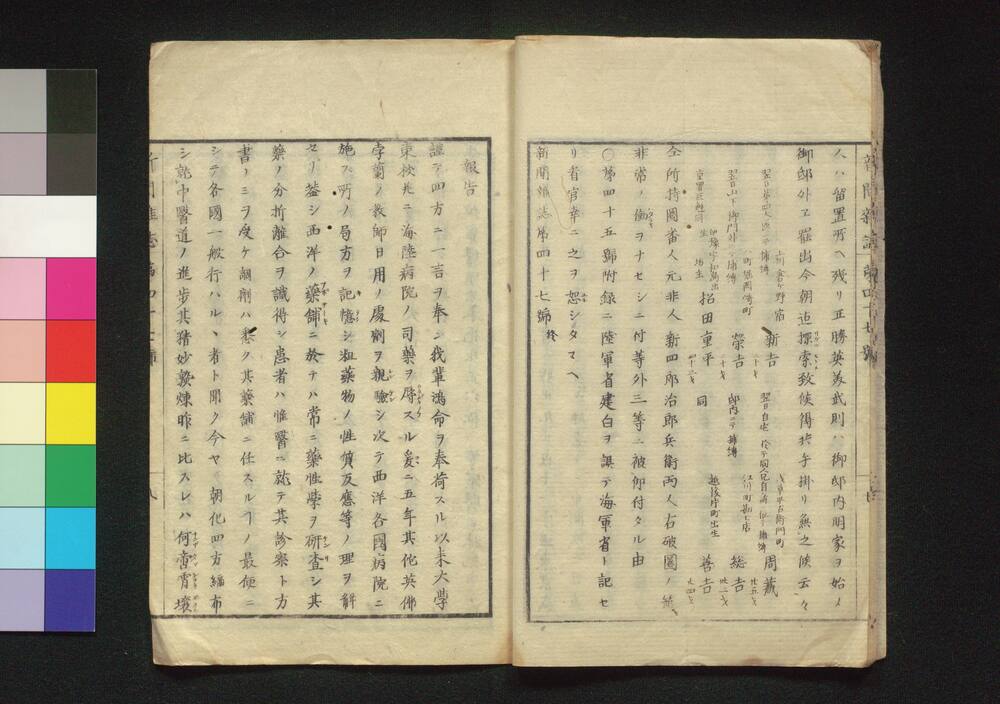 人ハ留置所ヘ残リ正勝英為武則ハ御邸内明家ヲ始メ
御邸外ヱ罷出今朝迠探索致候得共手掛リ無之候云々
新吉
翌日自宅
周蔵
翌日山下御門外ニテ捕縛
栄吉
邸内ニテ捕縛
総吉
招田重平
同
越後片町出生
善吉
仝所持圍番人元非人新四郎治郎兵衛両人右破圍ノ節
非常ノ働ヲナセシニ付等外三等ニ被仰付タル由
〇第四十五號附録ニ陸軍省建白ヲ誤テ海軍省ト記セ
リ看官幸ニ之ヲ恕シタマヘ
新聞雑誌第四十七號終
報告
謹テ四方ニ一言ヲ奉シ我輩鴻命ヲ奉荷スル以来大学
東校并ニ海陸病院ノ司薬ヲ辱スル爰ニ五年其他英佛
孛蘭ノ教師日用ノ處劑ヲ親驗シ次テ西洋各國病院ニ
施ス所ノ局方ヲ記憶シ粗薬物ノ性質反應等ノ理ヲ解
セリ蓋シ西洋ノ藥舗ニ於テハ常ニ藥性學ヲ研査シ其
藥ノ分析離合ヲ識得シ患者ハ惟醫ニ就テ其診察ト方
書ノミヲ受ケ調劑ハ悉ク其藥舗ニ任スルヿノ最便ニ
シテ各國一般行ハルヽ者ト聞ク今ヤ朝化四方編布
シ就中醫道ノ進歩其精妙熟煉昨ニ比スレハ何啻霄壌